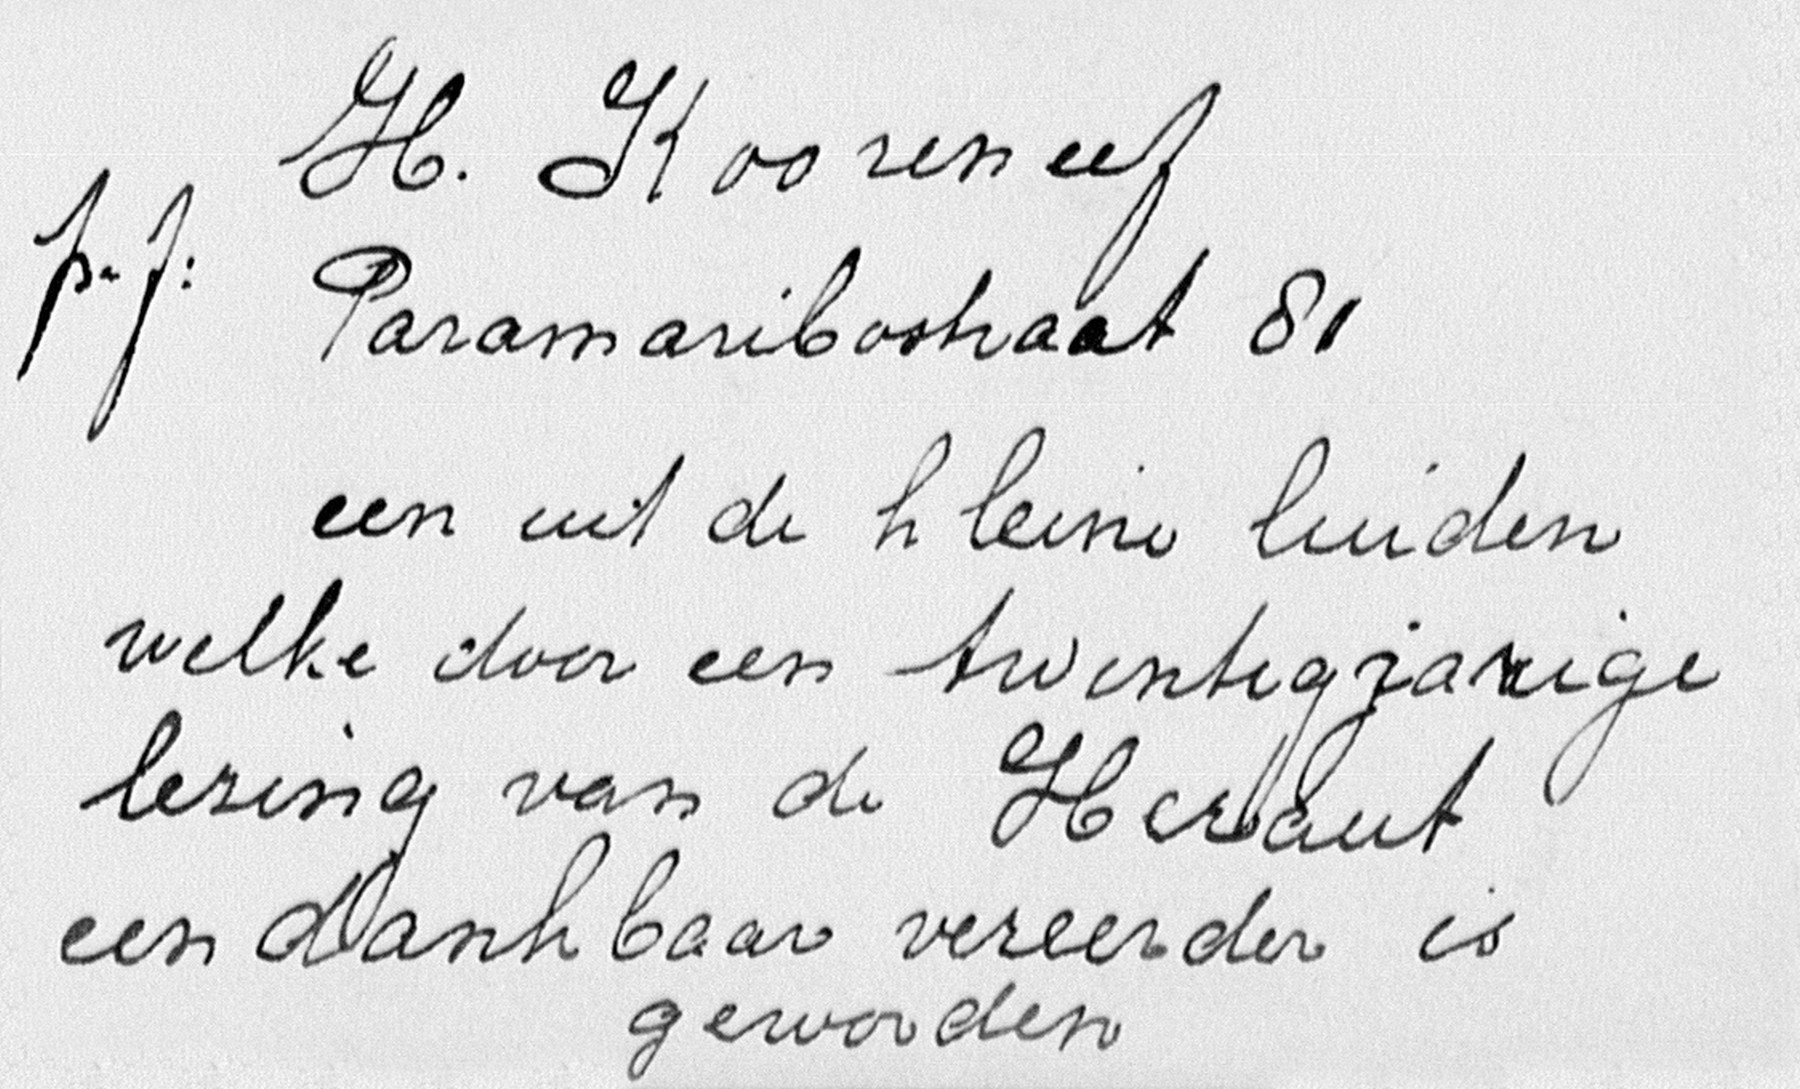 H. Kooreneef
p.f:
Paramaribostraat 81
een uit de kleine luiden
welke door een twintigjarige
lezing van de Heraut
een dankbaar vereerder is
geworden